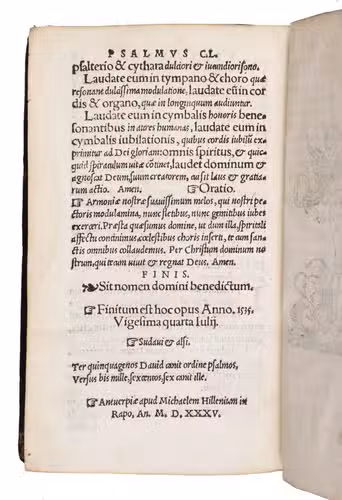 PSALMVS CL.
psalterio & cythara dulciori & iucundiori sono.
Laudate eum in tympano & choro quæ
resonant dulcissima modulatione, laudate eū in cor
dis & organo, quæ in longinquum audiuntur.
Laudate eum in cymbalis honoris bene
sonantibus in aures humanas, laudate eum in
cymbalis iubilationis, quibus cordis iubilū ex
primitur ad Dei gloriam: omnis spiritus, & quic
quid spiraculum vitæ continet, laudet dominum &
agnoscat Deum suum creatorem, cui sit laus & gratia
rum actio. Amen. ☞ Oratio.
☞ Armoniæ nostræ suauissimum melos, qui nostri pe
ctoris modulamina, nunc fletibus, nunc gemitibus iubes
exerceri. Præsta quæsumus domine, ut dum illa, spiritali
affectu continimus, cœlestibus choris inserti, te cum san
ctis omnibus collaudemus. Per Christum dominum no
strum, qui tecum uiuit & regnat Deus. Amen.
FINIS.
❧ Sit nomen domini benedictum.
☞ Finitum est hoc opus Anno. 1535.
Vigesima quarta Iulij.
☞ Sudaui & alsi.
Ter quinquagenos Dauid canit ordine psalmos,
Versus bis mille, sexcentos, sex canit ille.
☞ Antuerpiæ apud Michaelem Hillenium in
Rapo, An. M. D. XXXV.